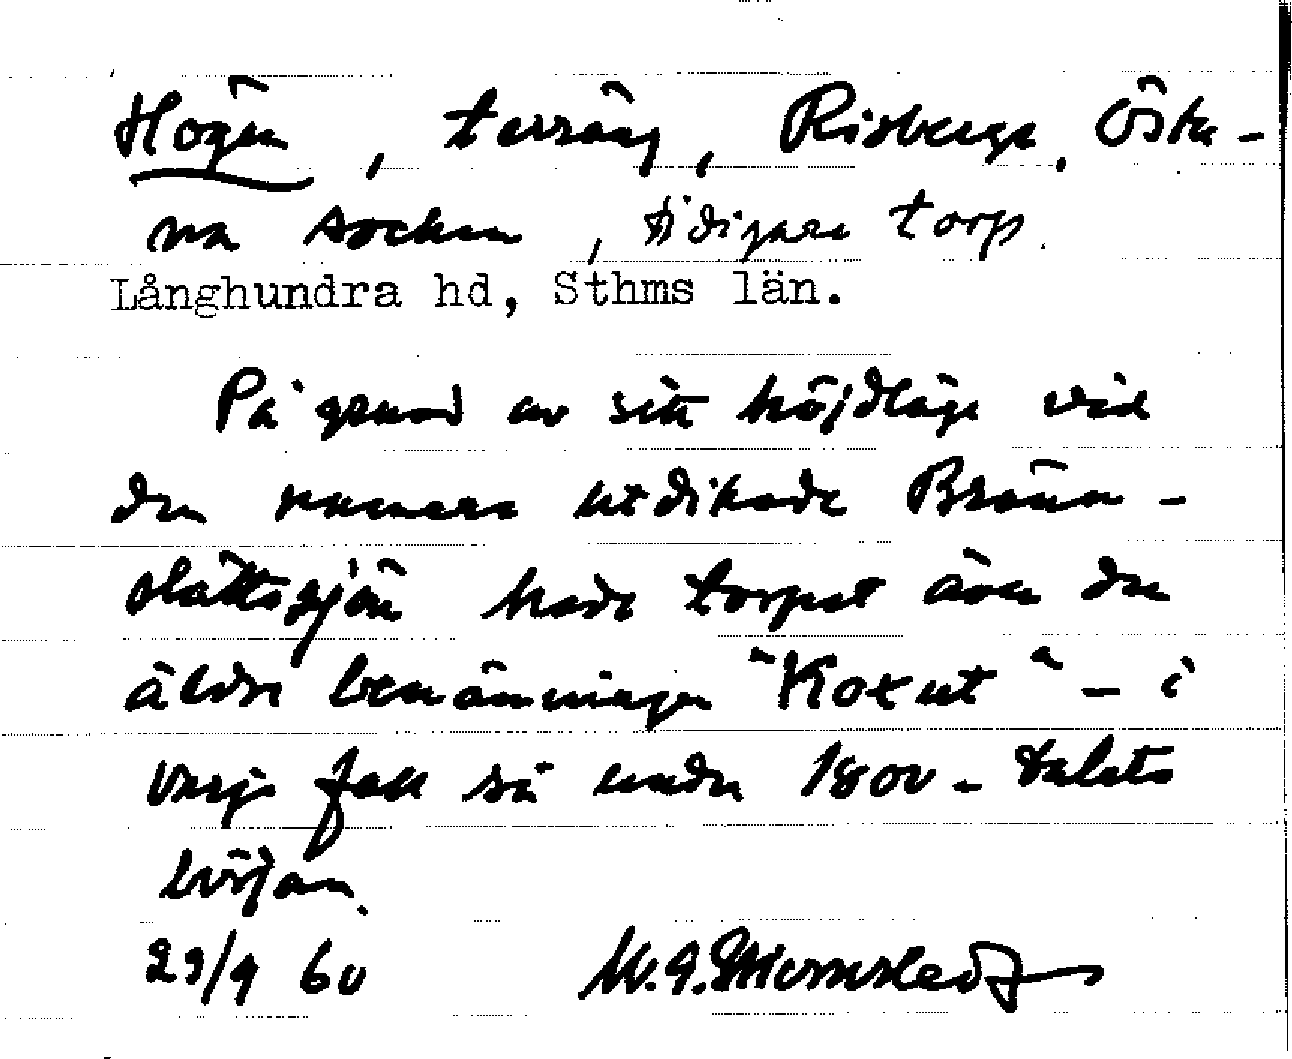 Högen, terräng, Risberga, Östu-
na socken, tidigare torp.
Långhundra hd, Sthms län.
På grund av sitt höjdläge vid
den numera utdikade Bränn-
slättssjön hade torpet även den
äldre benämningen "Koxut" - i
varje fall så under 1800-talets
början.
29/9 60